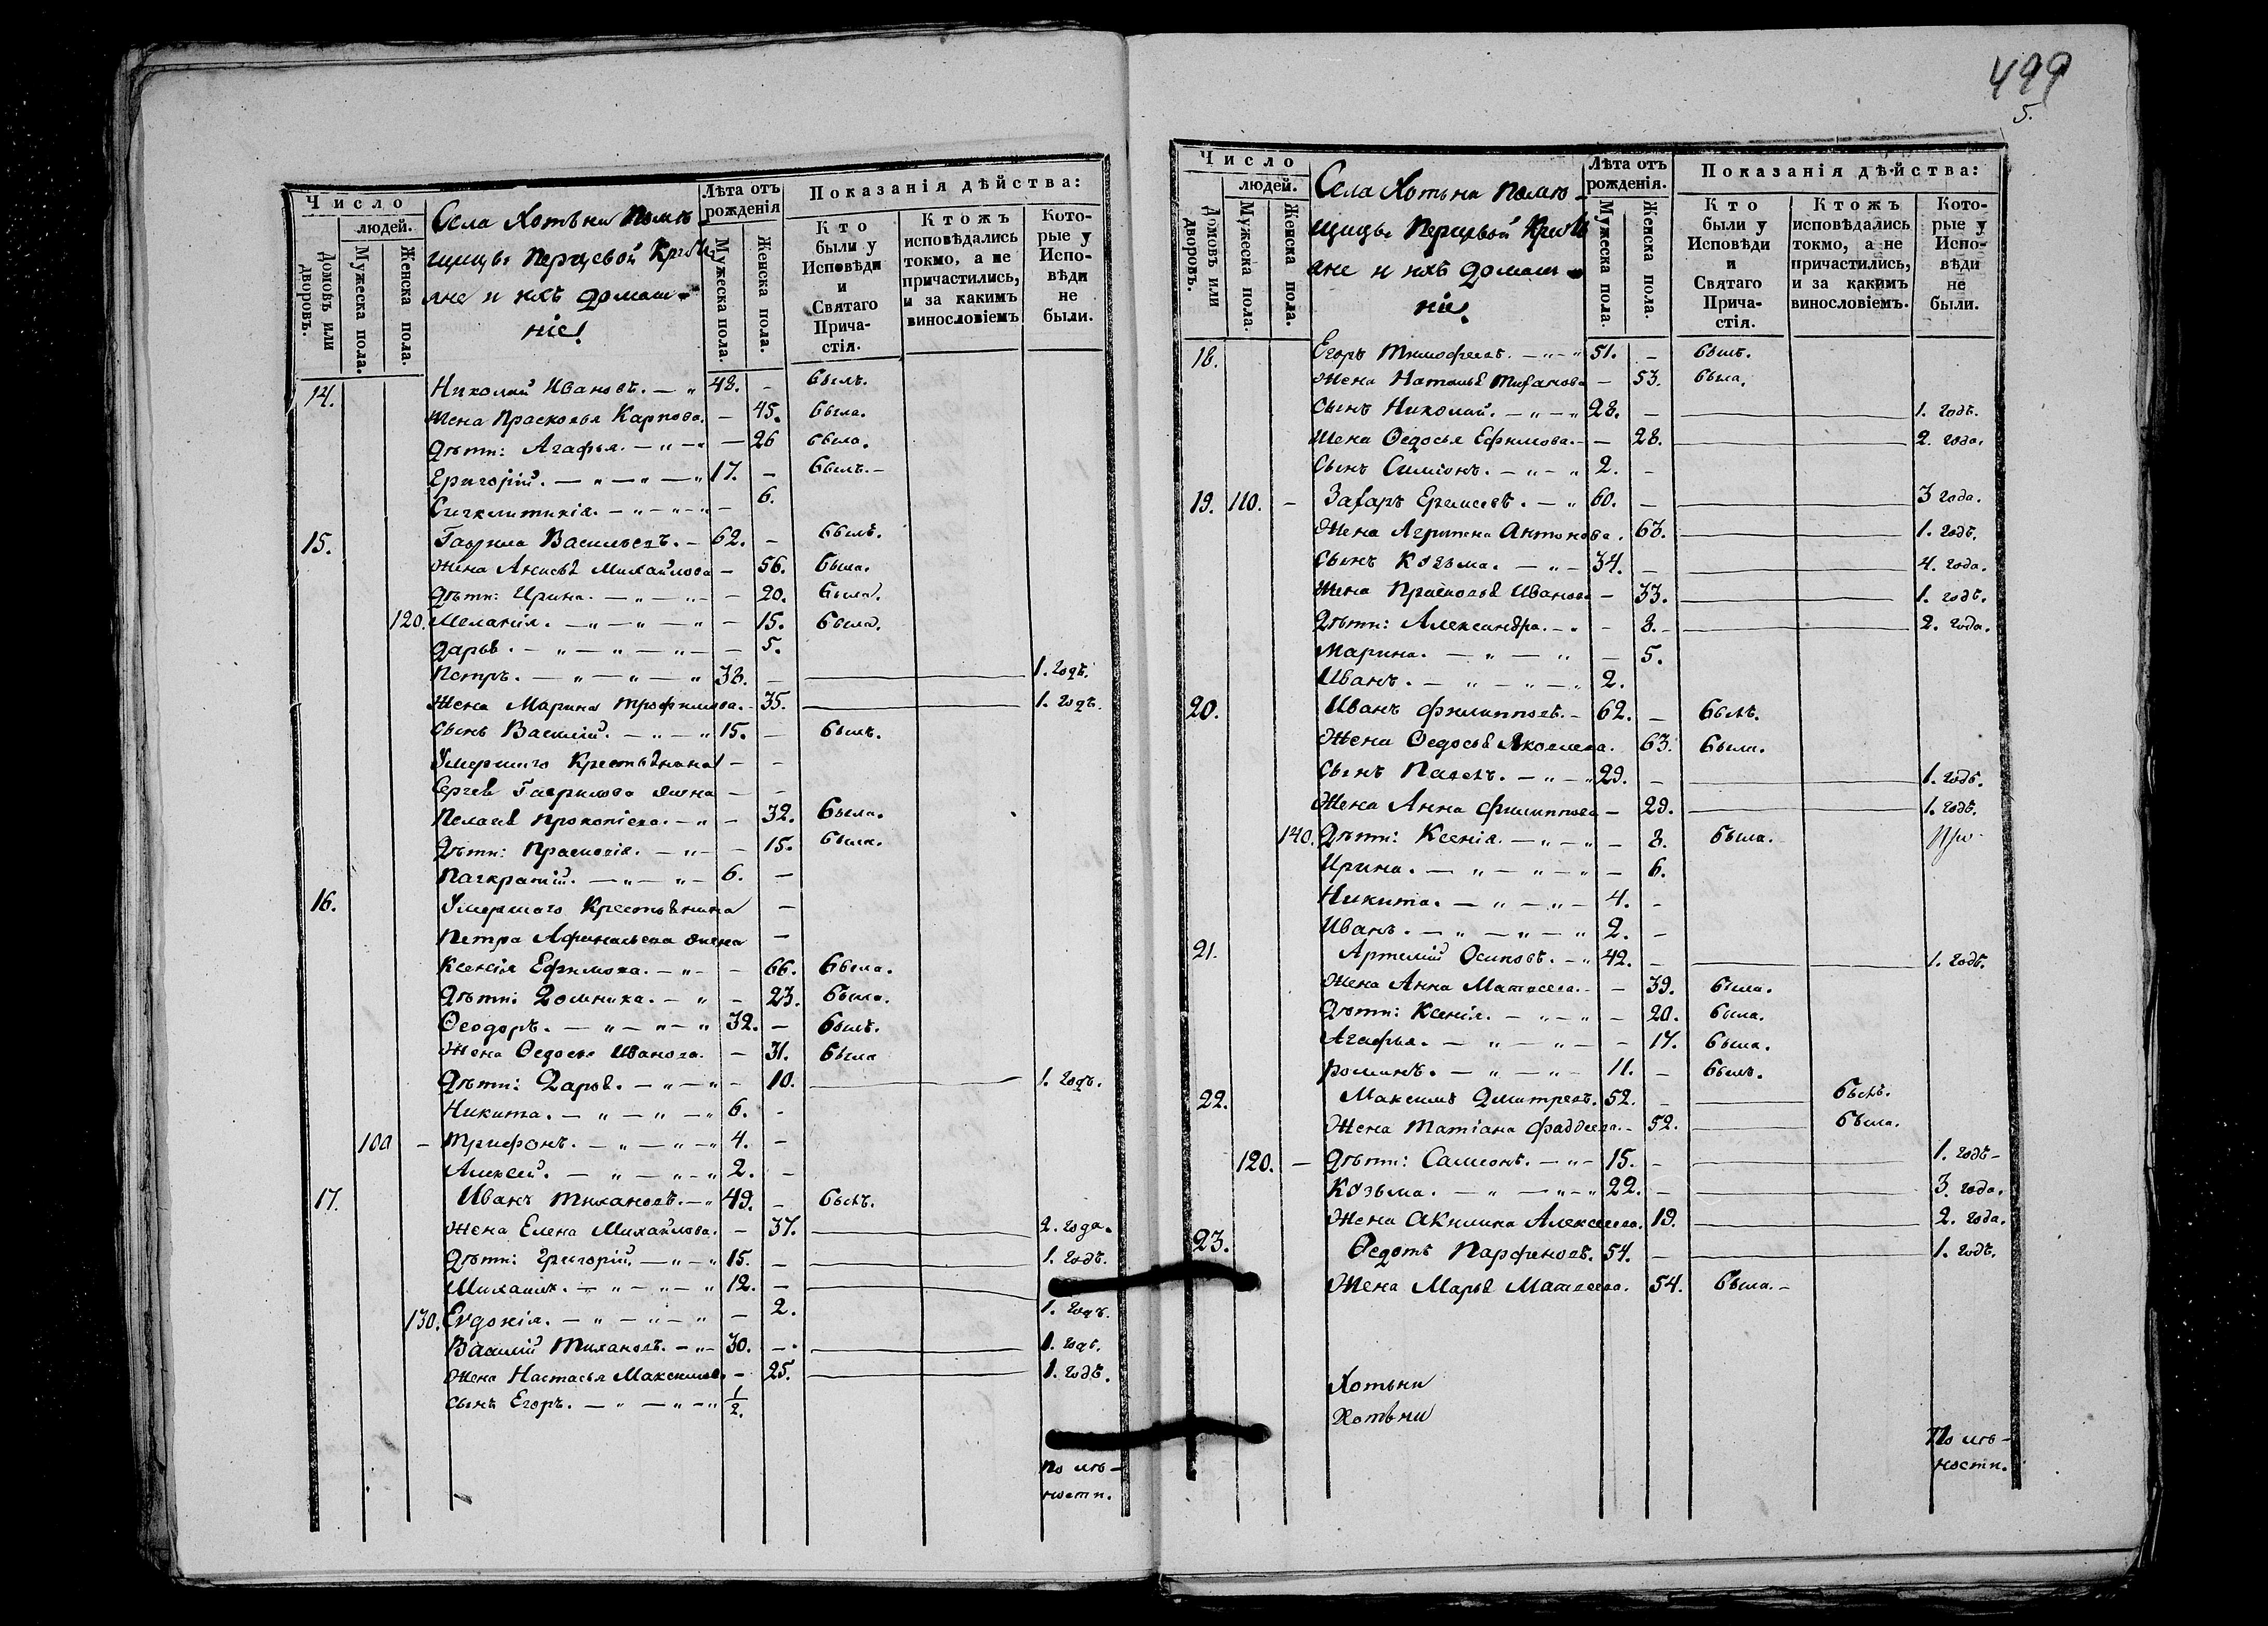 Число
людей.
Домовъ или дворовъ.
Мужеска пола.
Женска пола.
Села Хотѣни Помѣ-
щицы Перцевой Крестья
яне и ихъ домаш-
ніе.
Лѣта отъ рожденія
Мужеска пола.
Женска пола.
Показанія дѣйства:
Кто были у Исповѣди и Святаго Прича-стія.
Ктожъ исповѣдались токмо, а не причастились, и за какимъ винословіемъ
Кото-рые у Испо-вѣди не были.
14. Николай Ивановъ. — „ 48. — былъ.
Жена Прасковья Карпова. — 45. была.
Дѣти: Агафья. — „ — „ — 26 была.
Григорій. — „ — „ — „ 17. — былъ. —
Сигклитикія. — „ — „ — „ — 6.
15. Гаврила Васильевъ. — 62. — былъ.
Жена Анисья Михайлова — 56. была.
Дѣти: Ирина. — „ — „ — — 20. была.
120. Меланія. — „ — „ — „ — 15. была.
Дарья. — „ — „ — „ — — 5.
Петръ. — „ — „ — „ 38. — — 1. годъ.
Жена Марина Трофимова. — 35. — 1. годъ.
Сынъ Василій. — „ — „ 15. — былъ.
Умершаго Крестьянина — —
Сергея Гаврилова жена — —
Пелагея Прокопіева. — „ — 32. была.
Дѣти: Прасковія. — „ — — 15. была.
Пагкратій. — „ — „ — 6. —
16. Умершаго Крестьянина —
Петра Афанасьева жена —
Ксенія Ефимова. — „ — — 66. была.
Дѣти: Домника. — „ — 23. была.
Ѳеодоръ. — „ — „ — „ 32. — былъ.
Жена Ѳедосья Иванова. — 31. была
Дѣти: Дарья. — „ — „ — 10. — 1. годъ.
Никита. — „ — „ — „ 6. —
100 — Трифонъ. — „ — „ — „ 4. —
Алексей. — „ — „ — „ 2. —
17. Иванъ Тихановъ. — „ 49. — былъ.
Жена Елена Михайлова. — 37. — 2. года.
Дѣти: Григорій. — „ — „ 15. — — 1. годъ.
Михаилъ. — „ — „ — „ 12. — —
130. Евдокія. — „ — „ — „ — 2. 1. годъ.
Василій Тихановъ. — „ — 30. — — 1. годъ.
Жена Настасья Максимова. — 25. — 1. годъ.
Сынъ Егоръ. — „ — „ — „ 1/2.
по лѣ-
ности.
499
5.
Число
людей.
Домовъ или дворовъ.
Мужеска пола.
Женска пола.
Села Хотѣни Помѣ-
щицы Перцевой Кресть
яне и ихъ домаш-
ніе.
Лѣта отъ рожденія.
Мужеска пола.
Женска пола.
Показанія дѣйства:
Кто были у Исповѣди и Святаго Прича-стія.
Ктожъ исповѣдались токмо, а не причастились, и за какимъ винословіемъ.
Кото-рые у Испо-вѣди не были.
18. Егоръ Тимофеевъ. — „ — „ 51. — былъ.
Жена Наталья Тиханова — 53. была.
Сынъ Николай. — „ — „ 28. — — 1. годъ.
Жена Ѳедосья Ефимова. — — 28. — 2. года.
Сынъ Симіонъ. — „ — „ 2. —
19. 110. — Захаръ Еремеевъ. — „ 60. — — 3 года.
Жена Агрипена Антонова. 63. — 1. годъ.
Сынъ Козьма. — „ — 34. — — 4. года.
Жена Прасковья Иванова — 33. — 1. годъ.
Дѣти: Александра. — „ — 8. — — 2. года.
Марина. — „ — „ — 5.
Иванъ. — „ — „ — „ 2.
20. Иванъ Филипповъ. — 62. — былъ.
Жена Ѳедосья Яковлева. 63. была.
Сынъ Павелъ. — „ — „ 29. — — 1. годъ.
Жена Анна Филиппова — 29. — 1. годъ.
140. Дѣти: Ксенія. — „ — „ — 8. была.
Ирина. — „ — „ — „ — 6.
Никита. — „ — „ — 4. —
Иванъ. — „ — „ — „ 2. —
21. Артемій Осиповъ. — „ 42. — — 1. годъ.
Жена Анна Матвеева. — — 39. была.
Дѣти: Ксенія. — „ — „ — 20. была.
Агафья. — „ — „ — — 17. была.
Романъ. — „ — „ — 11. — былъ.
22. Максимъ Дмитревъ. 52. — — былъ.
Жена Татіана Фаддеева. — 52. — была.
120. — Дѣти: Самсонъ. — „ — 15. — — 1. годъ —
Козьма. — „ — „ — „ 22. — — 3. года.
Жена Акилина Алексеева. 19. — 2. года.
23. Ѳедотъ Парфеновъ. 54. — — 1. годъ.
Жена Марья Матвеева. 54. была. —
Хотѣни
Хотѣни
По лѣ-
ности.